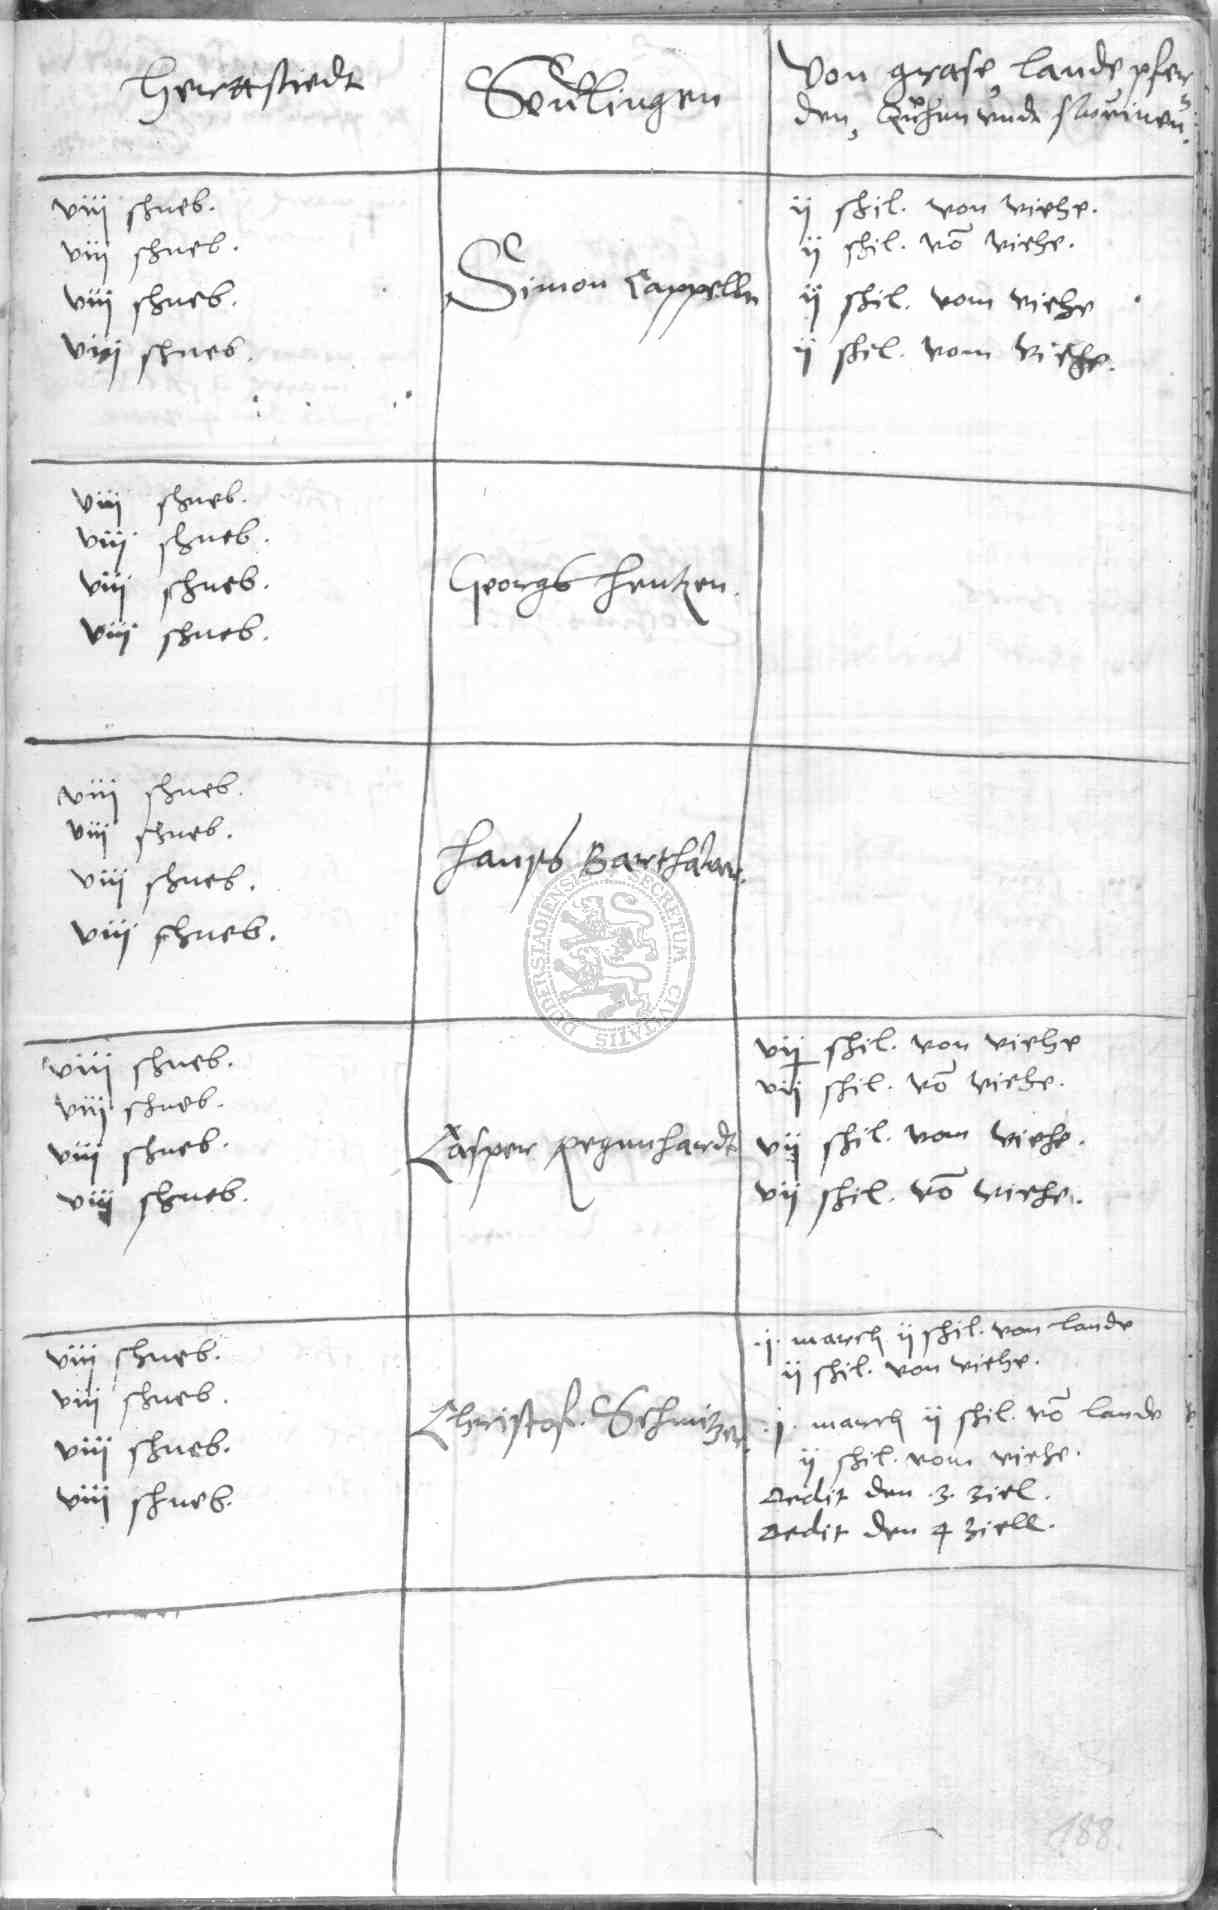 Herttstedt
Seulingen
Von grase, lande pfer
den, Kuhen unde schweinen.
viij schneb.
viij schneb.
viij schneb.
viij schneb.
Simon Cappelln
ij schil. von viehe.
ij schil. vō viehe.
ij schil. vom viehe
ij schil. vom viehe.
viij schneb.
viij schneb.
viij schneb.
viij schneb.
Georgs Hentzen.
viij schneb.
viij schneb.
viij schneb.
viij schneb.
Hanss
DUDERSTADIENSIS SECRETUM CIVITATIS
viij schneb.
viij schneb.
viij schneb.
viij schneb.
Casper Regenhardt
vij schil. von viehe
vij schil. vō viehe.
vij schil. vom viehe.
vij schil. vō viehe.
viij schneb.
viij schneb.
viij schneb.
viij schneb.
Christof. Schnitzer.
.j. march ij schil. von lande
ij schil. von viehe.
.j. march ij schil. vō lande
ij schil. vom viehe.
Dedit den .3. ziel.
Dedit den 4 ziell.
188.